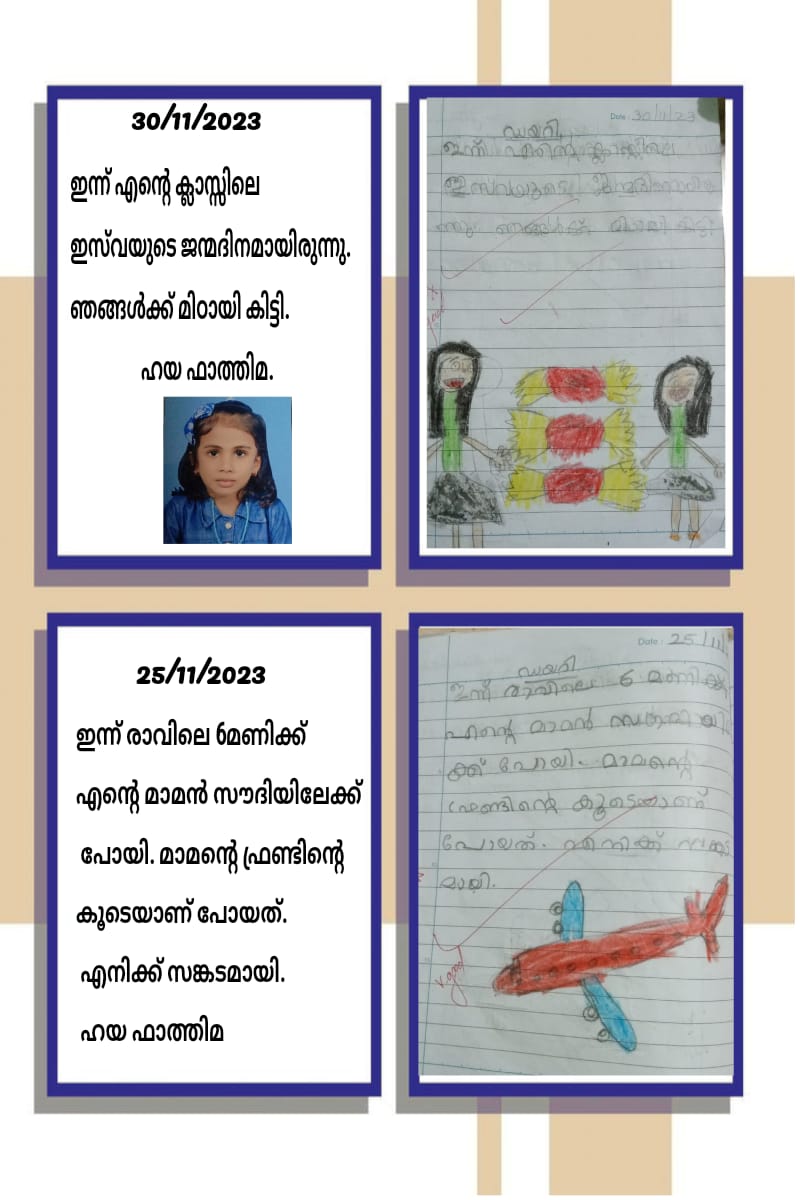 30/11/2023
ഇന്ന് എന്റെ ക്ലാസ്സിലെ
ഇസ്‌വയുടെ ജന്മദിനമായിരുന്നു.
ഞങ്ങൾക്ക് മിഠായി കിട്ടി.
ഹയ ഫാത്തിമ.
Date : 30/11/23
ഡയറി
ഇന്ന് എന്റെ ക്ലാസ്സിലെ
ഇസ്‌വയുടെ
ഞങ്ങൾക്ക് മിഠായി കിട്ടി
good
25/11/2023
ഇന്ന് രാവിലെ 6മണിക്ക്
എന്റെ മാമൻ സൗദിയിലേക്ക്
പോയി. മാമന്റെ ഫ്രണ്ടിന്റെ
കൂടെയാണ് പോയത്.
എനിക്ക് സങ്കടമായി.
ഹയ ഫാത്തിമ
Date : 25/11/
ഡയറി
ഇന്ന് രാവിലെ 6 മണിക്ക്
എന്റെ മാമൻ
ക്ക് പോയി. മാമന്റെ
കൂടെയാണ്
പോയത്. എനിക്ക് സങ്കട
മായി.
v.good